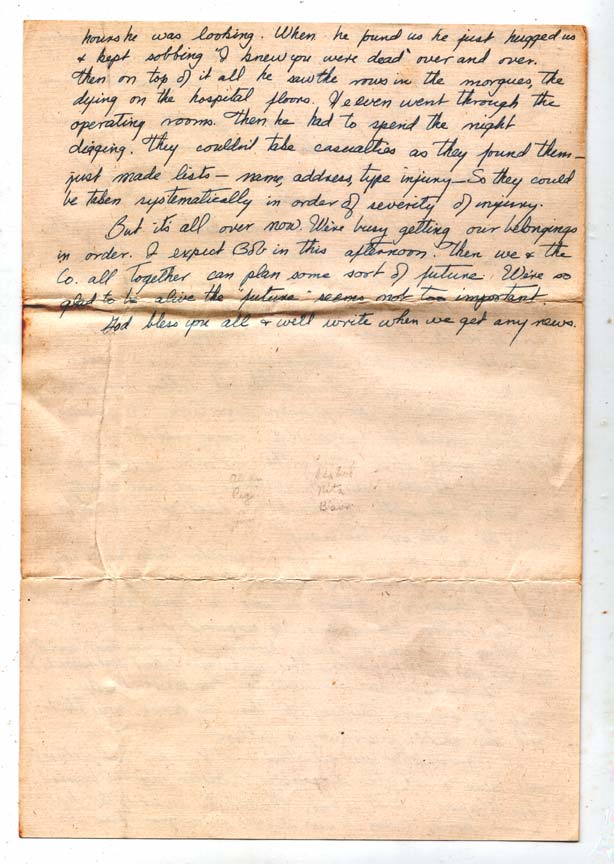 hours he was looking. When he found us he just hugged us
& kept sobbing "I knew you were dead" over and over.
Then on top of it all he saw the rows in the morgues, the
dying on the hospital floors. He even went through the
operating rooms. Then he had to spend the night
digging. They couldn't take casualties as they found them –
just made lists – name, address, type injury – So they could
be taken systematically in order of severity of injury.
But it's all over now. We're busy getting our belongings
in order. I expect Bob in this afternoon. Then we & the
Co. all together can plan some sort of future. We're so
glad to be alive the "future" seems not too important.
God bless you all & we'll write when we get any news.
Nita